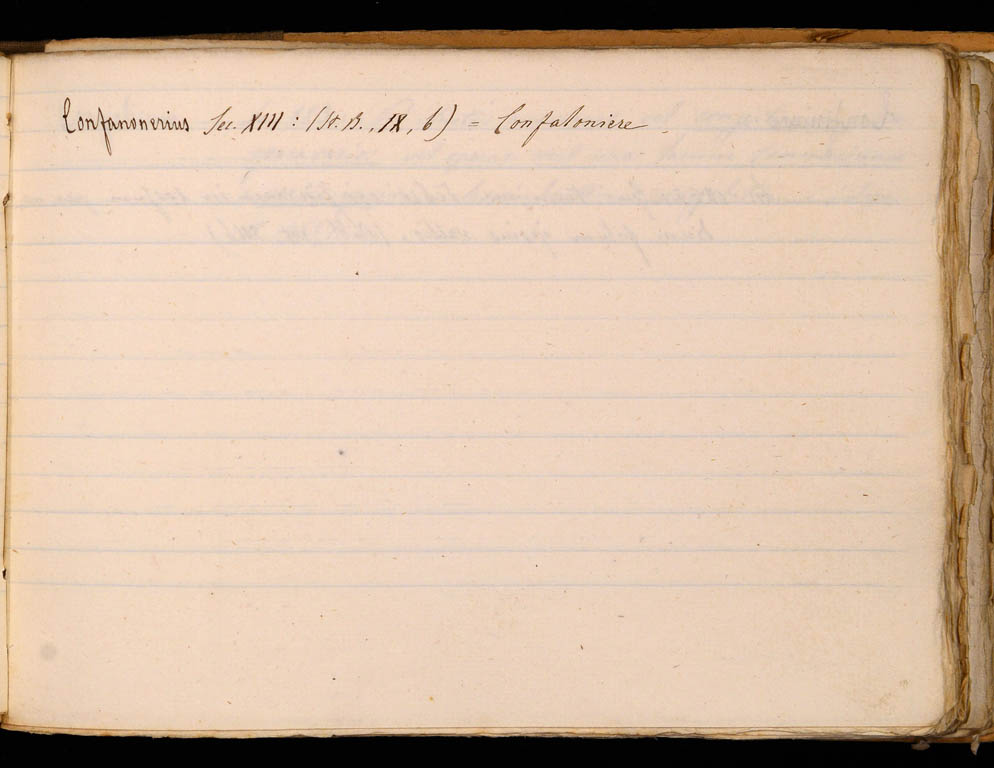 Confanonerius Sec. XIII : (St. B., IX, 6) = Confaloniere.